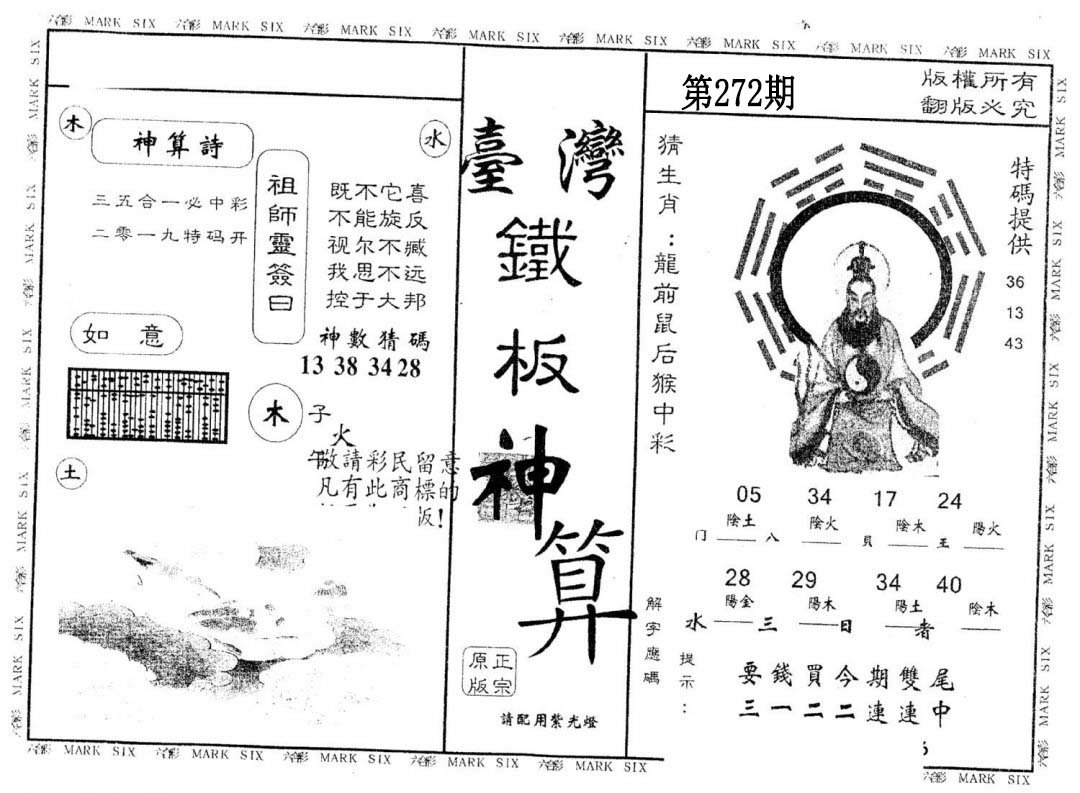 六合彩 MARK SIX 六合彩 MARK SIX 六合彩 MARK SIX 六合彩 MARK SIX 六合彩 MARK SIX 六合彩 MARK SIX 六合彩 MARK SIX 六合彩 MARK SIX
木
神算詩
三五合一必中彩
二零一九特码开
水
祖師靈簽曰
既不它喜
不能旋反
视尔不臧
我思不远
控于大邦
神數猜碼
13 38 34 28
如意
木
子
火
午
敬請彩民留意
凡有此商標的
版!
土
臺灣
鐵
板
神
算
正宗
原版
請配用紫光燈
第272期
版權所有
翻版必究
猜生肖：龍前鼠后猴中彩
特碼提供
36
13
43
05 34 17 24
陰土 陰火 陰木 陽火
门 八 貝 王
28 29 34 40
陽金 陽木 陽土 陰木
水 三 日 者
解字應碼
提示：
要錢買今期雙尾
三一二二連連中
六合彩 MARK SIX 六合彩 MARK SIX 六合彩 MARK SIX 六合彩 MARK SIX 六合彩 MARK SIX 六合彩 MARK SIX